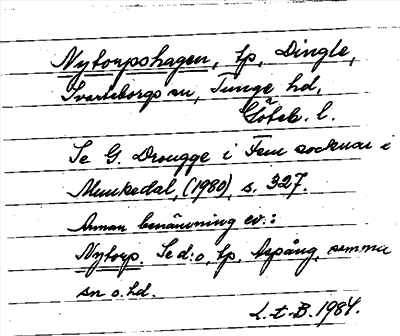 Nytorpshagen, tp, Dingle,
Svarteborgs sn, Tunge hd,
Göteb. l.
Se G. Drougge i Fem socknar i
Munkedal, (1980), s. 327.
Annan benämning ev.:
Nytorp. Se d:o, tp, Aspång, samma
sn o. hd.
L.t.B. 1984.